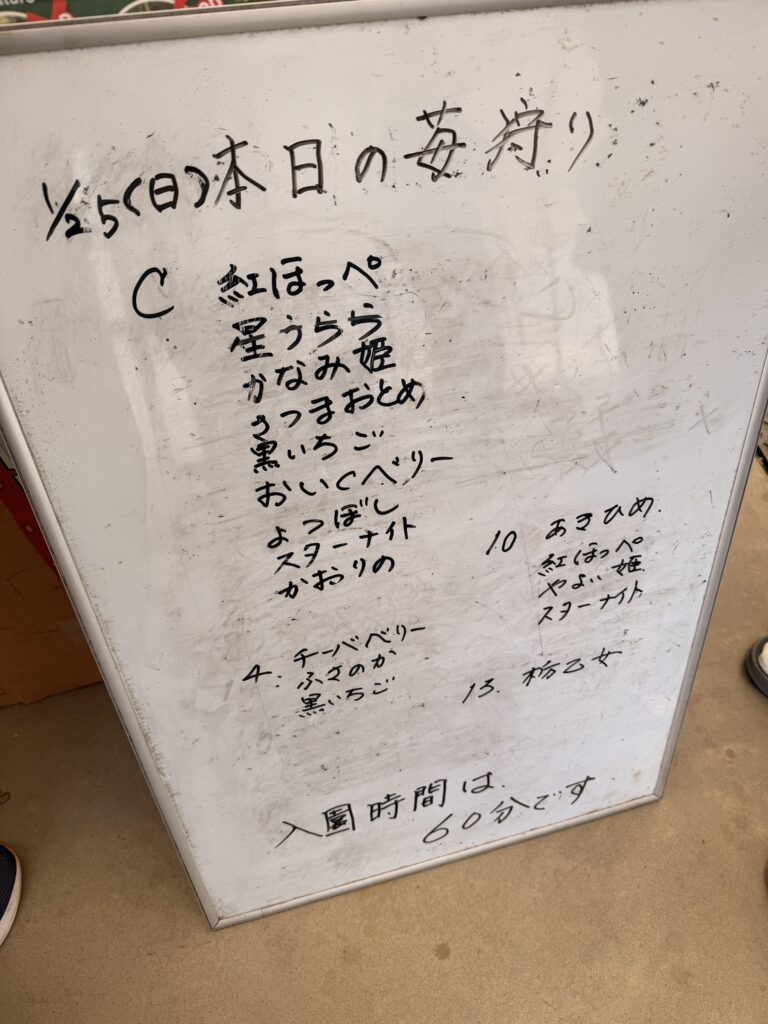 1/25(日)本日の苺狩り
C 紅ほっぺ
星うらら
かなみ姫
さつまおとめ
黒いちご
おいCベリー
よつぼし
スターナイト
かおりの
10 あきひめ
紅ほっぺ
やよい姫
スターナイト
4. チーバベリー
ふさのか
黒いちご
13. 栃乙女
入園時間は
60分です